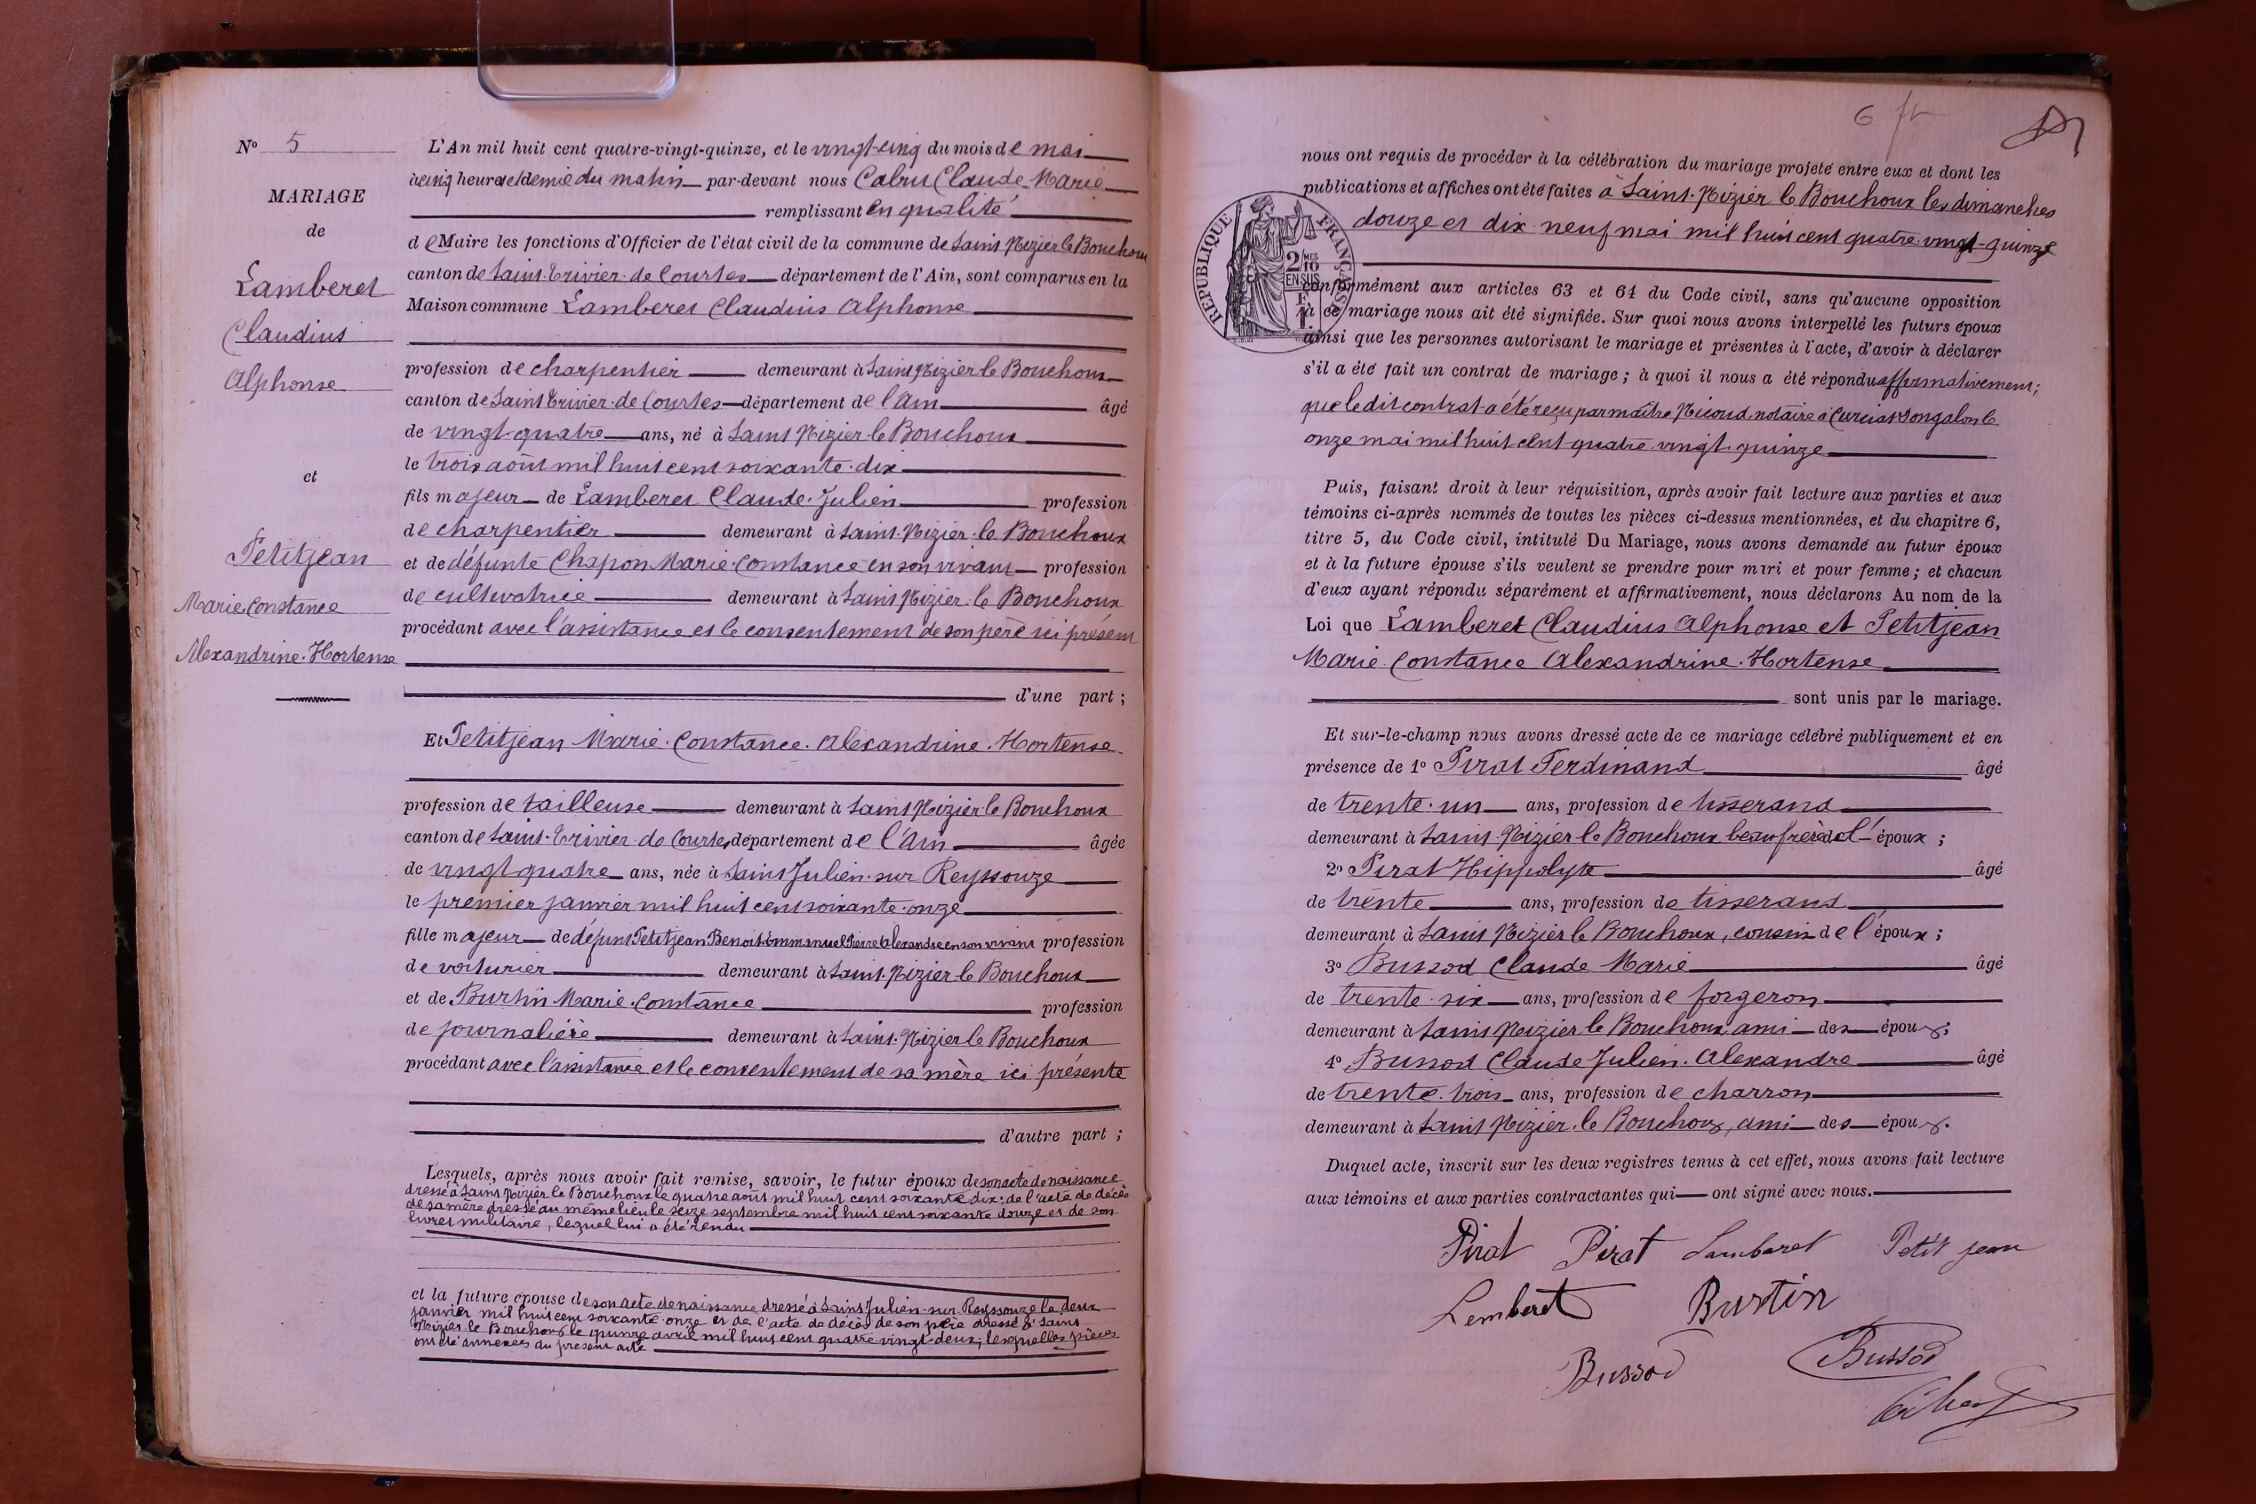 N° 5
MARIAGE
de
Lamberet
Claudius
Alphonse
et
Petitjean
Marie Constance
Alexandrine. Hortense
L'An mil huit cent quatre-vingt-quinze, et le vingt-cinq du mois de mai
à cinq heures et demie du matin par-devant nous Claude Marie
remplissant en qualité
de Maire les fonctions d'Officier de l'état civil de la commune de Saint Nizier le Bouchoux
canton de Saint-Trivier-de Courtes département de l'Ain, sont comparus en la
Maison commune Lamberet Claudius Alphonse
profession de charpentier demeurant à Saint Nizier le Bouchoux
canton de Saint Trivier de Courtes département de l'Ain âgé
de vingt-quatre ans, né à Saint Nizier le Bouchoux
le trois août mil huit cent soixante-dix
fils majeur de Lamberet Claude. Julien profession
de charpentier demeurant à Saint-Nizier-le Bouchoux
et de défunte Chapon Marie Constance en son vivant profession
de cultivatrice demeurant à Saint Nizier-le Bouchoux
procédant avec l'assistance et le consentement de son père ici présent
d'une part ;
Et Petitjean Marie. Constance. Alexandrine. Hortense
profession de tailleuse demeurant à Saint Nizier le Bouchoux
canton de Saint-Trivier de Courtes département de l'Ain âgée
de vingt-quatre ans, née à Saint Julien-sur Reyssouze
le premier janvier mil huit cent soixante-onze
fille majeur de défunt Petitjean Benoit Emmanuel Pierre Alexandre en son vivant profession
de voiturier demeurant à Saint-Nizier-le Bouchoux
et de Burtin Marie. Constance profession
de journalière demeurant à Saint-Nizier le Bouchoux
procédant avec l'assistance et le consentement de sa mère ici présente
d'autre part ;
Lesquels, après nous avoir fait remise, savoir, le futur époux de son acte de naissance
dressé à Saint Nizier le Bouchoux le quatre août mil huit cent soixante dix; de l'acte de décès
de sa mère dressé au même lieu le seize septembre mil huit cent soixante douze et de son
livret militaire, lequel lui a été rendu
et la future épouse de son acte de naissance dressé à Saint Julien-sur Reyssouze le deux
janvier mil huit cent soixante-onze et de l'acte de décès de son père dressé à Saint
Nizier le Bouchoux le quinze avril mil huit cent quatre vingt-deux; lesquelles pièces
ont été annexées au présent acte
6 ft
nous ont requis de procéder à la célébration du mariage projeté entre eux et dont les
publications et affiches ont été faites à Saint-Nizier le Bouchoux les dimanches
douze et dix-neuf mai mil huit cent quatre-vingt-quinze
RÉPUBLIQUE FRANÇAISE
2 MES 10
EN SUS
F
1
conformément aux articles 63 et 64 du Code civil, sans qu'aucune opposition
à ce mariage nous ait été signifiée. Sur quoi nous avons interpellé les futurs époux
ainsi que les personnes autorisant le mariage et présentes à l'acte, d'avoir à déclarer
s'il a été fait un contrat de mariage ; à quoi il nous a été répondu affirmativement;
que ledit contrat a été reçu par maître Nicoud notaire à Curciat Dongalon le
onze mai mil huit cent quatre-vingt-quinze
Puis, faisant droit à leur réquisition, après avoir fait lecture aux parties et aux
témoins ci-après nommés de toutes les pièces ci-dessus mentionnées, et du chapitre 6,
titre 5, du Code civil, intitulé Du Mariage, nous avons demandé au futur époux
et à la future épouse s'ils veulent se prendre pour mari et pour femme ; et chacun
d'eux ayant répondu séparément et affirmativement, nous déclarons Au nom de la
Loi que Lamberet Claudius Alphonse et Petitjean
Marie. Constance Alexandrine. Hortense
sont unis par le mariage.
Et sur-le-champ nous avons dressé acte de ce mariage célébré publiquement et en
présence de 1° Pirat Ferdinand âgé
de trente-un ans, profession de tisserand
demeurant à Saint-Nizier le Bouchoux beau frère de l'époux ;
2° Pirat Hippolyte âgé
de trente ans, profession de tisserand
demeurant à Saint Nizier le Bouchoux, cousin de l'époux ;
3° Bussod Claude Marie âgé
de trente-six ans, profession de forgeron
demeurant à Saint Nizier le Bouchoux ami des époux;
4° Bussod Claude Julien. Alexandre âgé
de trente-trois ans, profession de charron
demeurant à Saint Nizier-le Bouchoux, ami des époux.
Duquel acte, inscrit sur les deux registres tenus à cet effet, nous avons fait lecture
aux témoins et aux parties contractantes qui ont signé avec nous.
Pirat Pirat Lamberet Petit jean
Lemberet Burtin
Bussod Bussod